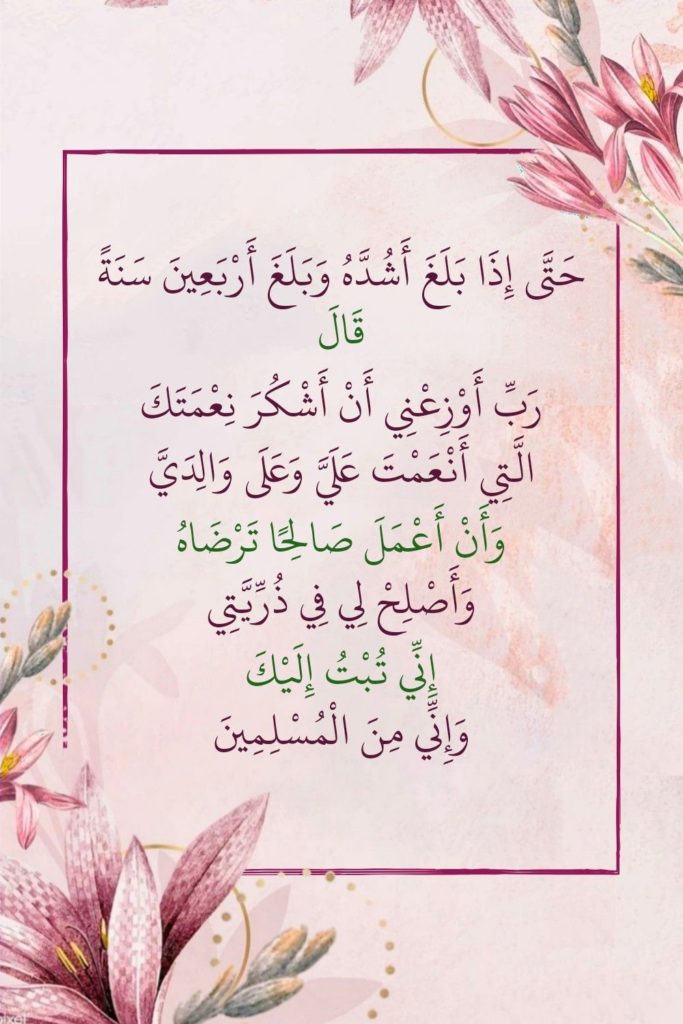 حَتَّى إِذَا بَلَغَ أَشُدَّهُ وَبَلَغَ أَرْبَعِينَ سَنَةً
قَالَ
رَبِّ أَوْزِعْنِي أَنْ أَشْكُرَ نِعْمَتَكَ
الَّتِي أَنْعَمْتَ عَلَيَّ وَعَلَى وَالِدَيَّ
وَأَنْ أَعْمَلَ صَالِحًا تَرْضَاهُ
وَأَصْلِحْ لِي فِي ذُرِّيَّتِي
إِنِّي تُبْتُ إِلَيْكَ
وَإِنِّي مِنَ الْمُسْلِمِينَ